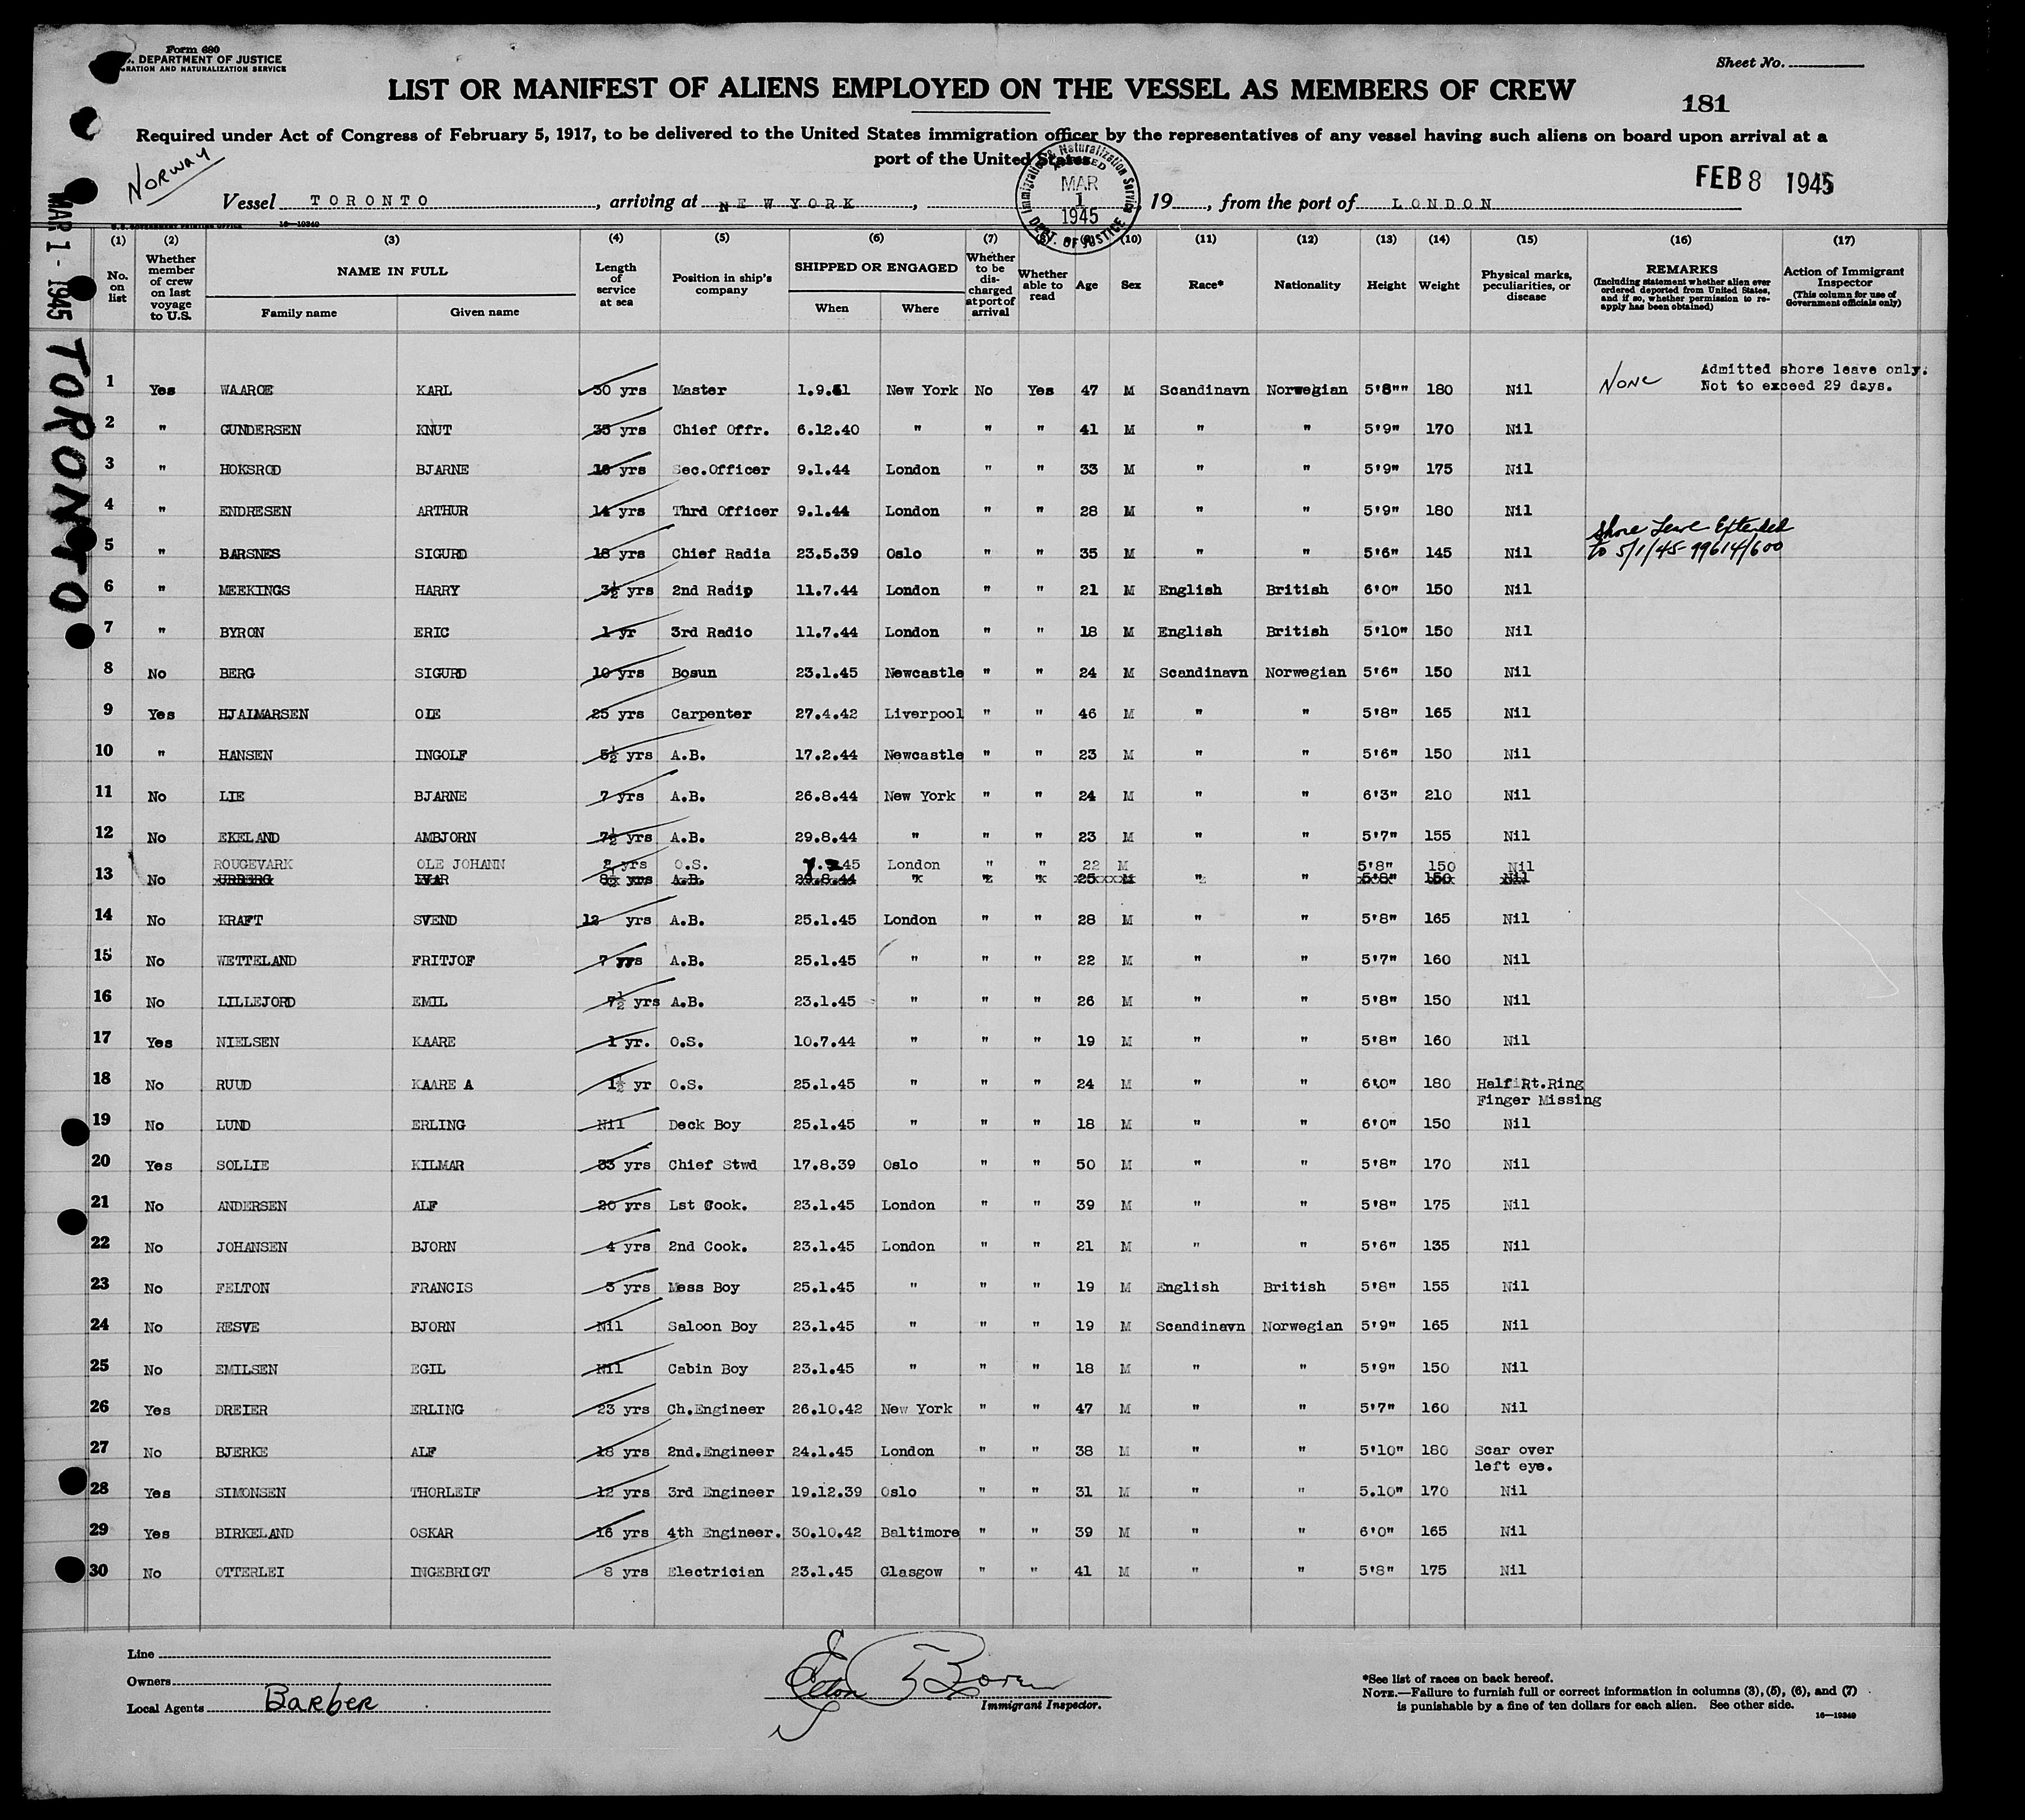 Form 680
DEPARTMENT OF JUSTICE
IMMIGRATION AND NATURALIZATION SERVICE
Sheet No.
LIST OR MANIFEST OF ALIENS EMPLOYED ON THE VESSEL AS MEMBERS OF CREW
181
Required under Act of Congress of February 5, 1917, to be delivered to the United States immigration officer by the representatives of any vessel having such aliens on board upon arrival at a
port of the United States
Norway
FEB 8 1945
Immigration & Naturalization Service MAR 1 1945 DEPT. OF JUSTICE
Vessel TORONTO, arriving at NEW YORK, 19, from the port of LONDON
U.S. GOVERNMENT PRINTING OFFICE 16—19349
MAR 1 - 1945 TORONTO
(1) (2) (3) (4) (5) (6) (7) (8) (9) (10) (11) (12) (13) (14) (15) (16) (17)
No. on list
Whether member of crew on last voyage to U.S.
NAME IN FULL
Family name Given name
Length of service at sea
Position in ship's company
SHIPPED OR ENGAGED
When Where
Whether to be discharged at port of arrival
Whether able to read
Age Sex Race* Nationality Height Weight
Physical marks, peculiarities, or disease
REMARKS
(Including statement whether alien ever ordered deported from United States, and if so, whether permission to reapply has been obtained)
Action of Immigrant Inspector
(This column for use of Government officials only)
1 Yes WAAROE KARL 30 yrs Master 1.9.41 New York No Yes 47 M Scandinavn Norwegian 5'8"" 180 Nil None Admitted shore leave only.
Not to exceed 29 days.
2 " GUNDERSEN KNUT 35 yrs Chief Offr. 6.12.40 " " " 41 M " " 5'9" 170 Nil
3 " HOKSROD BJARNE 16 yrs Sec.Officer 9.1.44 London " " 33 M " " 5'9" 175 Nil
4 " ENDRESEN ARTHUR 14 yrs Thrd Officer 9.1.44 London " " 28 M " " 5'9" 180 Nil
Shore Leave Extended
to 5/1/45 - 99614/600
5 " BARSNES SIGURD 18 yrs Chief Radia 23.5.39 Oslo " " 35 M " " 5'6" 145 Nil
6 " MEEKINGS HARRY 3½ yrs 2nd Radio 11.7.44 London " " 21 M English British 6'0" 150 Nil
7 " BYRON ERIC 1 yr 3rd Radio 11.7.44 London " " 18 M English British 5'10" 150 Nil
8 No BERG SIGURD 10 yrs Bosun 23.1.45 Newcastle " " 24 M Scandinavn Norwegian 5'6" 150 Nil
9 Yes HJALMARSEN OLE 25 yrs Carpenter 27.4.42 Liverpool " " 46 M " " 5'8" 165 Nil
10 " HANSEN INGOLF 5½ yrs A.B. 17.2.44 Newcastle " " 23 M " " 5'6" 150 Nil
11 No LIE BJARNE 7 yrs A.B. 26.8.44 New York " " 24 M " " 6'3" 210 Nil
12 No EKELAND AMBJORN 7½ yrs A.B. 29.8.44 " " " 23 M " " 5'7" 155 Nil
ROUGEVARK OLE JOHANN 2 yrs O.S. 7.2.45 London " " 22 M 5'8" 150 Nil
13 No URBERG IVAR 8½ yrs A.B. 29.8.44 " " " 25 M " 5'8" 150 Nil
14 No KRAFT SVEND 12 yrs A.B. 25.1.45 London " " 28 M " " 5'8" 165 Nil
15 No WETTELAND FRITJOF 7 yrs A.B. 25.1.45 " " " 22 M " " 5'7" 160 Nil
16 No LILLEJORD EMIL 7½ yrs A.B. 23.1.45 " " " 26 M " " 5'8" 150 Nil
17 Yes NIELSEN KAARE 1 yr. O.S. 10.7.44 " " " 19 M " " 5'8" 160 Nil
18 No RUUD KAARE A 1½ yr O.S. 25.1.45 " " " 24 M " " 6'0" 180 Half Rt.Ring
Finger Missing
19 No LUND ERLING Nil Deck Boy 25.1.45 " " " 18 M " " 6'0" 150 Nil
20 Yes SOLLIE KILMAR 33 yrs Chief Stwd 17.8.39 Oslo " " 50 M " " 5'8" 170 Nil
21 No ANDERSEN ALF 20 yrs Lst Cook. 23.1.45 London " " 39 M " " 5'8" 175 Nil
22 No JOHANSEN BJORN 4 yrs 2nd Cook. 23.1.45 London " " 21 M " " 5'6" 135 Nil
23 No FELTON FRANCIS 3 yrs Mess Boy 25.1.45 " " " 19 M English British 5'8" 155 Nil
24 No RESVE BJORN Nil Saloon Boy 23.1.45 " " " 19 M Scandinavn Norwegian 5'9" 165 Nil
25 No EMILSEN EGIL Nil Cabin Boy 23.1.45 " " " 18 M " " 5'9" 150 Nil
26 Yes DREIER ERLING 23 yrs Ch.Engineer 26.10.42 New York " " 47 M " " 5'7" 160 Nil
27 No BJERKE ALF 18 yrs 2nd.Engineer 24.1.45 London " " 38 M " " 5'10" 180 Scar over
left eye.
28 Yes SIMONSEN THORLEIF 12 yrs 3rd Engineer 19.12.39 Oslo " " 31 M " " 5.10" 170 Nil
29 Yes BIRKELAND OSKAR 16 yrs 4th Engineer. 30.10.42 Baltimore " " 39 M " " 6'0" 165 Nil
30 No OTTERLEI INGEBRIGT 8 yrs Electrician 23.1.45 Glasgow " " 41 M " " 5'8" 175 Nil
Line
Owners
Local Agents Barber
Immigrant Inspector.
*See list of races on back hereof.
NOTE.—Failure to furnish full or correct information in columns (3), (5), (6), and (7)
is punishable by a fine of ten dollars for each alien. See other side.
16—19349